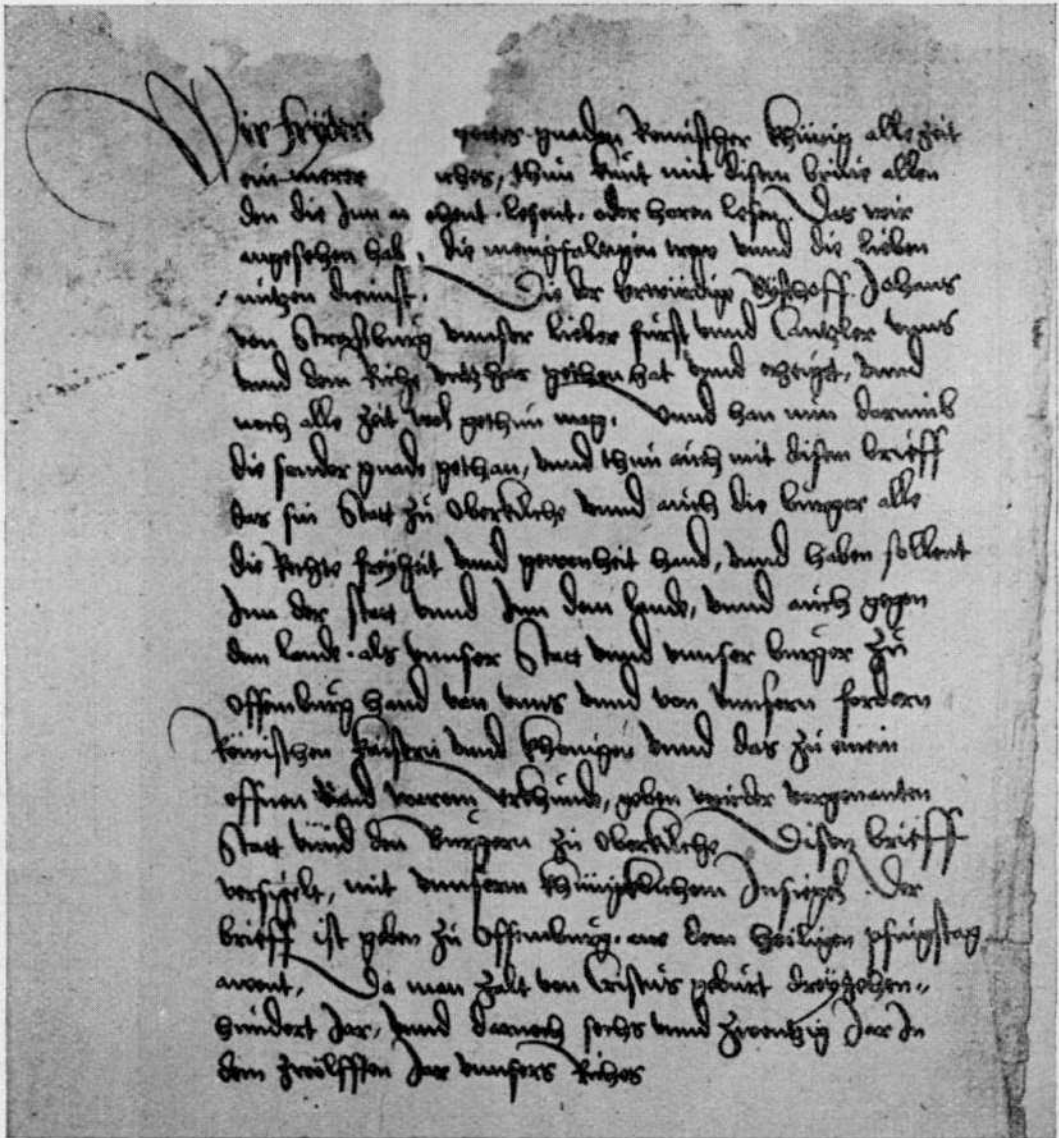 Wir Frydri gottes gnaden Romischer Khünig alle Zeit
ein merer iches, thun kunt mit disem brieve allen
den die Inn an ehent. lesent. oder horen lesen. Das wir
angesehen hab die manigfaltigen vnnd die lieben
nützen dienst. Die der Erwürdige Byschoff Johans
von Straßburg vnnser lieber fürst vnnd Cantzler vnns
vnnd dem Riche vntz har gethon hat vnnd erzeigt, vnnd
noch alle Zeit wol gethun mag. vnnd han nun darumb
die sonder gnade gethan, vnnd thun auch mit disem brieff
das sin Statt zü Oberkilche vnnd auch die burger alle
die Rechte freyheit vnnd gewonheit hand, vnnd haben sollent
Inn der statt vnnd Inn dem lande, vnnd auch gegen
dem lande. als vnnser Statt vnnd vnnser burger zü
Offemburg hand von vnns vnnd von vnnsern fordern
Römischen Keisern vnnd Khenigen vnnd das zü einem
offnen vnnd warem vrkhunde, geben wir der vorgenanten
Statt vnnd den Burgern zü Oberkilche Disen brieff
versigelt, mit vnnserm Khüniglichem Insiegel. Der
brieff ist geben zü Offemburg. ane dem heiligen pfingstag
awent, Da man zalt von Cristus geburt dreyzehen-
hundert Jar, vnnd darnach sechs vnnd zwentzig Jar In
dem zwölfften Jar vnnsers Riches